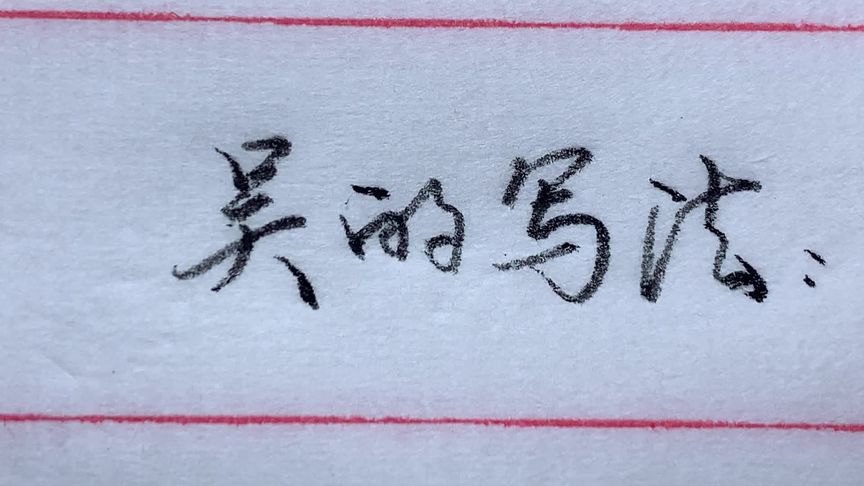 吴的写法：